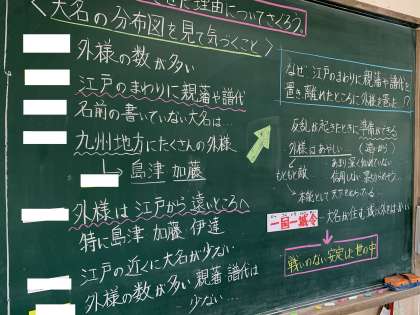 せた理由についてさぐろう。
＜大名の分布図を見て気づくこと＞
外様の数が多い
江戸のまわりに親藩や譜代
名前の書いていない大名は…
九州地方にたくさんの外様
島津 加藤
外様は江戸から遠いところへ
特に島津 加藤 伊達
江戸の近くに大名が少ない
外様の数が多い 親藩 譜代は
少ない…
なぜ江戸のまわりに親藩や譜代を
置き、離れたところに外様が
反乱が起きたときに準備ができる
外様はあやしい (遠いから)
もともと敵
あまり深く
信用しない 裏切りそう
一国一城令
大名が住む城以外
戦いのない安定した世の中